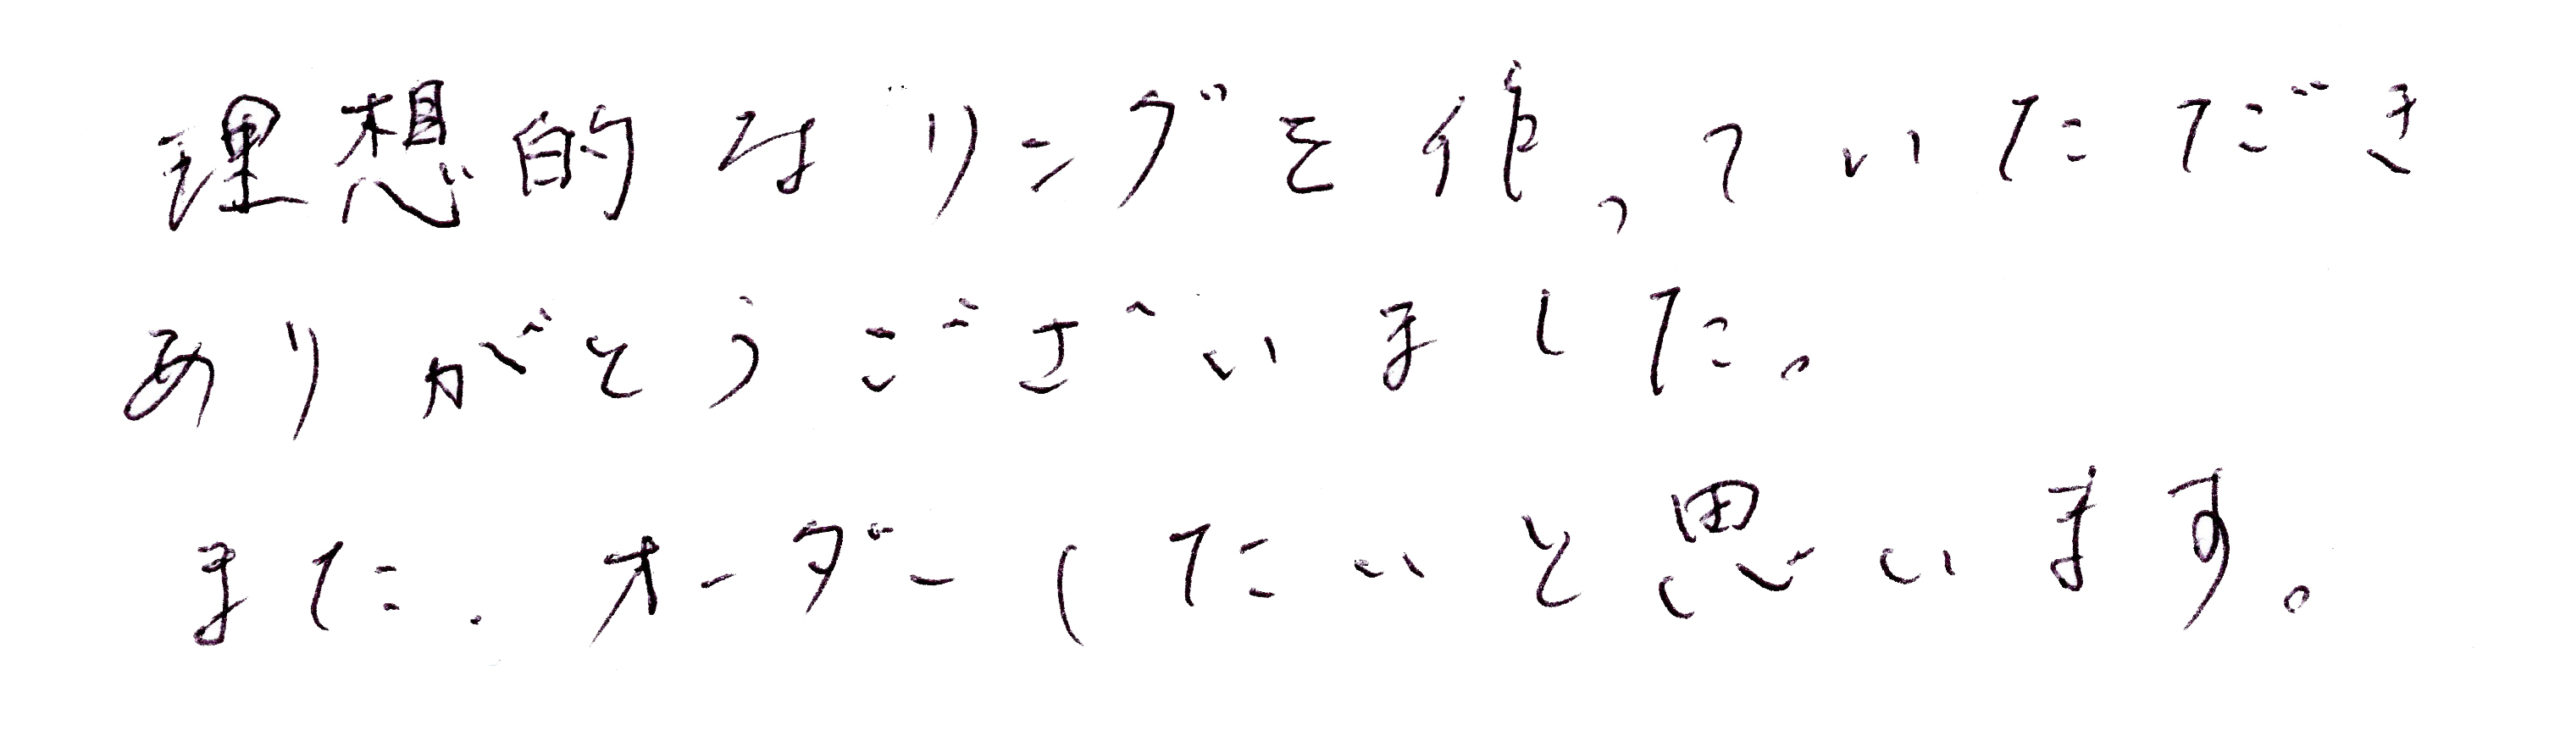 理想的なリングを作っていただき
ありがとうございました。
また、オーダーしたいと思います。